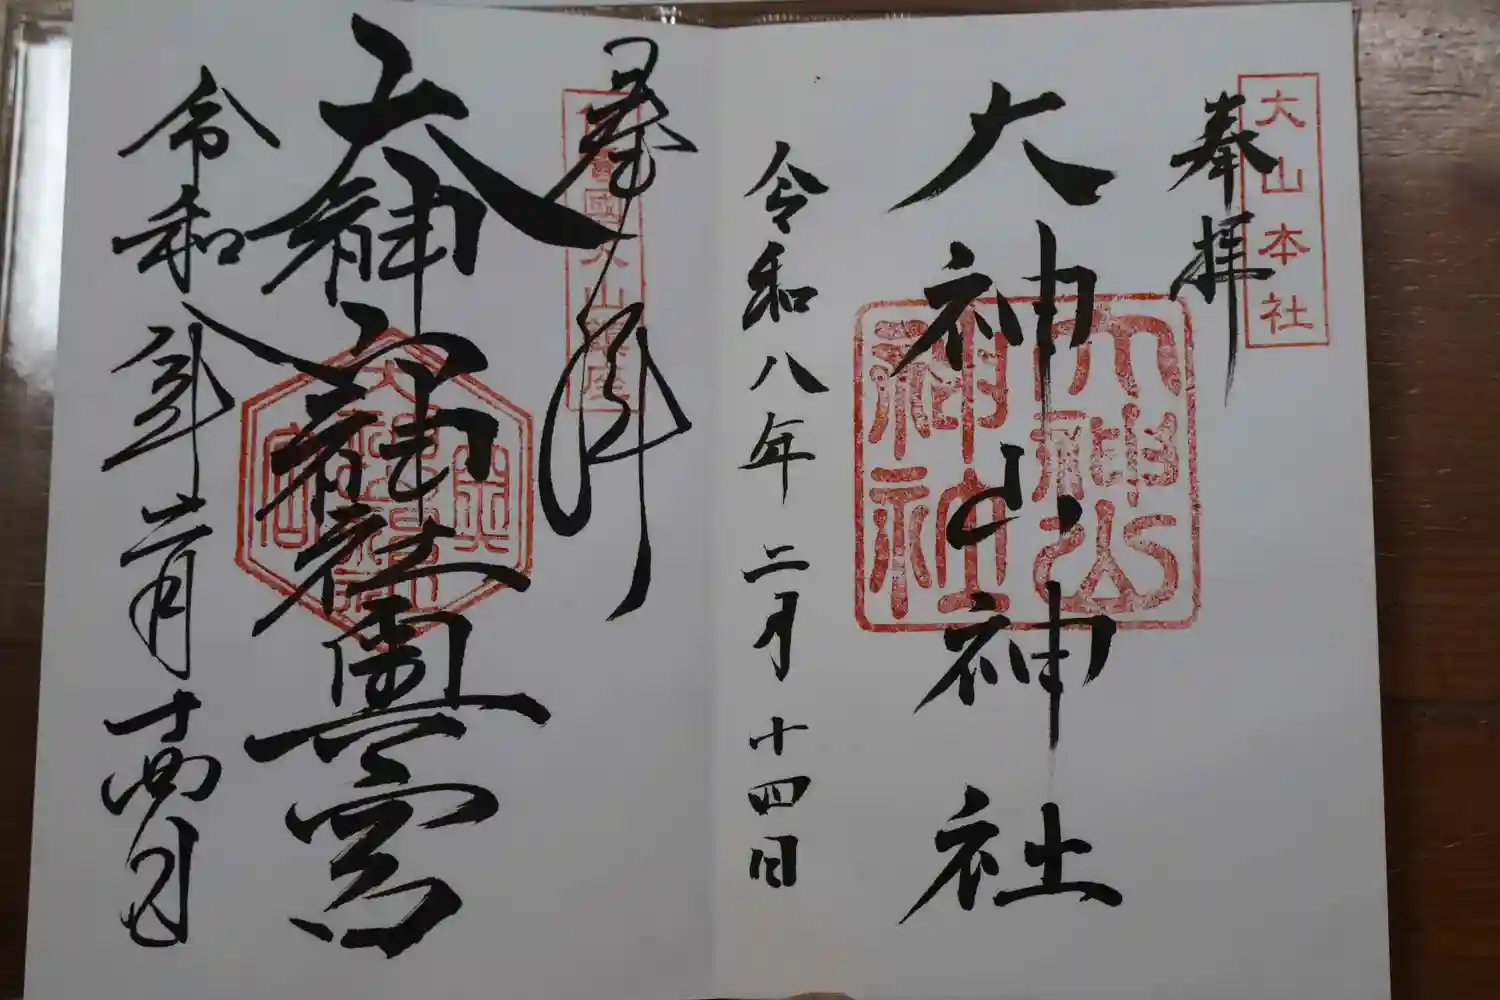 大山本社
奉拝
大神山神社
大神山
神社
令和八年二月十四日
奉拝
國大山鎮座
大神山神社奥宮
令和八年二月十四日